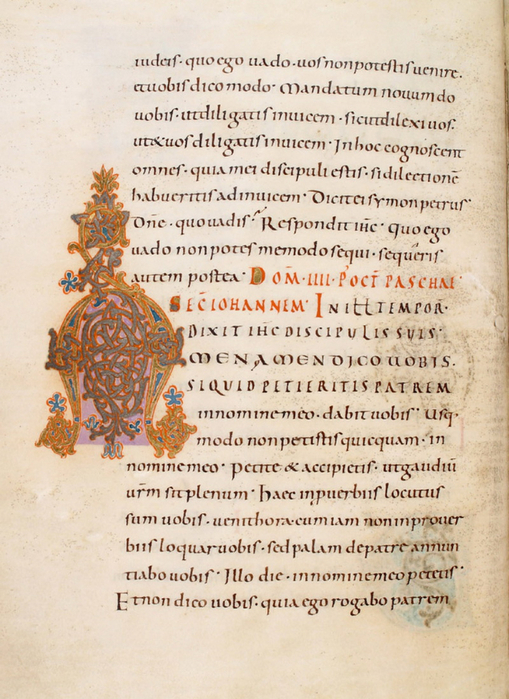 iudeis · quo ego uado · uos non potestis uenire ·
et uobis dico modo · Mandatum nouum do
uobis · ut diligatis inuicem · sicut dilexi uos ·
ut & uos diligatis inuicem · In hoc cognoscent
omnes · quia mei discipuli estis · si dilectionē
habueritis ad inuicem · Dicit ei symon petrus ·
Dn̄e · quo uadis · Respondit ih̄c · quo ego
uado non potes me modo sequi · sequeris
autem postea · DOM̄ · IIII · POCT̄ PASCHAE ·
SEC̄ IOHANNEM · IN ILL TEMPOR ·
DIXIT IHC DISCIPULIS SUIS ·
AMEN AMEN DICO UOBIS ·
SI QUID PETIERITIS PATREM
in nomine meo · dabit uobis · Usq ·
modo non petistis quicquam · in
nomine meo · Petite & accipietis · ut gaudiū
ur̄m sit plenum · haec in puerbiis locutus
sum uobis · uenit hora cum iam non in prouer
biis loquar uobis · sed palam de patre annun
tiabo uobis · Illo die · in nomine meo petetis ·
Et non dico uobis · quia ego rogabo patrem